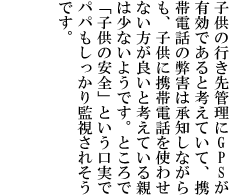 子供の行き先管理にＧＰＳが
有効であると考えていて、携
帯電話の弊害は承知しながら
も、子供に携帯電話を使わせ
ない方が良いと考えている親
は少ないようです。ところで
「子供の安全」という口実で
パパもしっかり監視されそう
です。